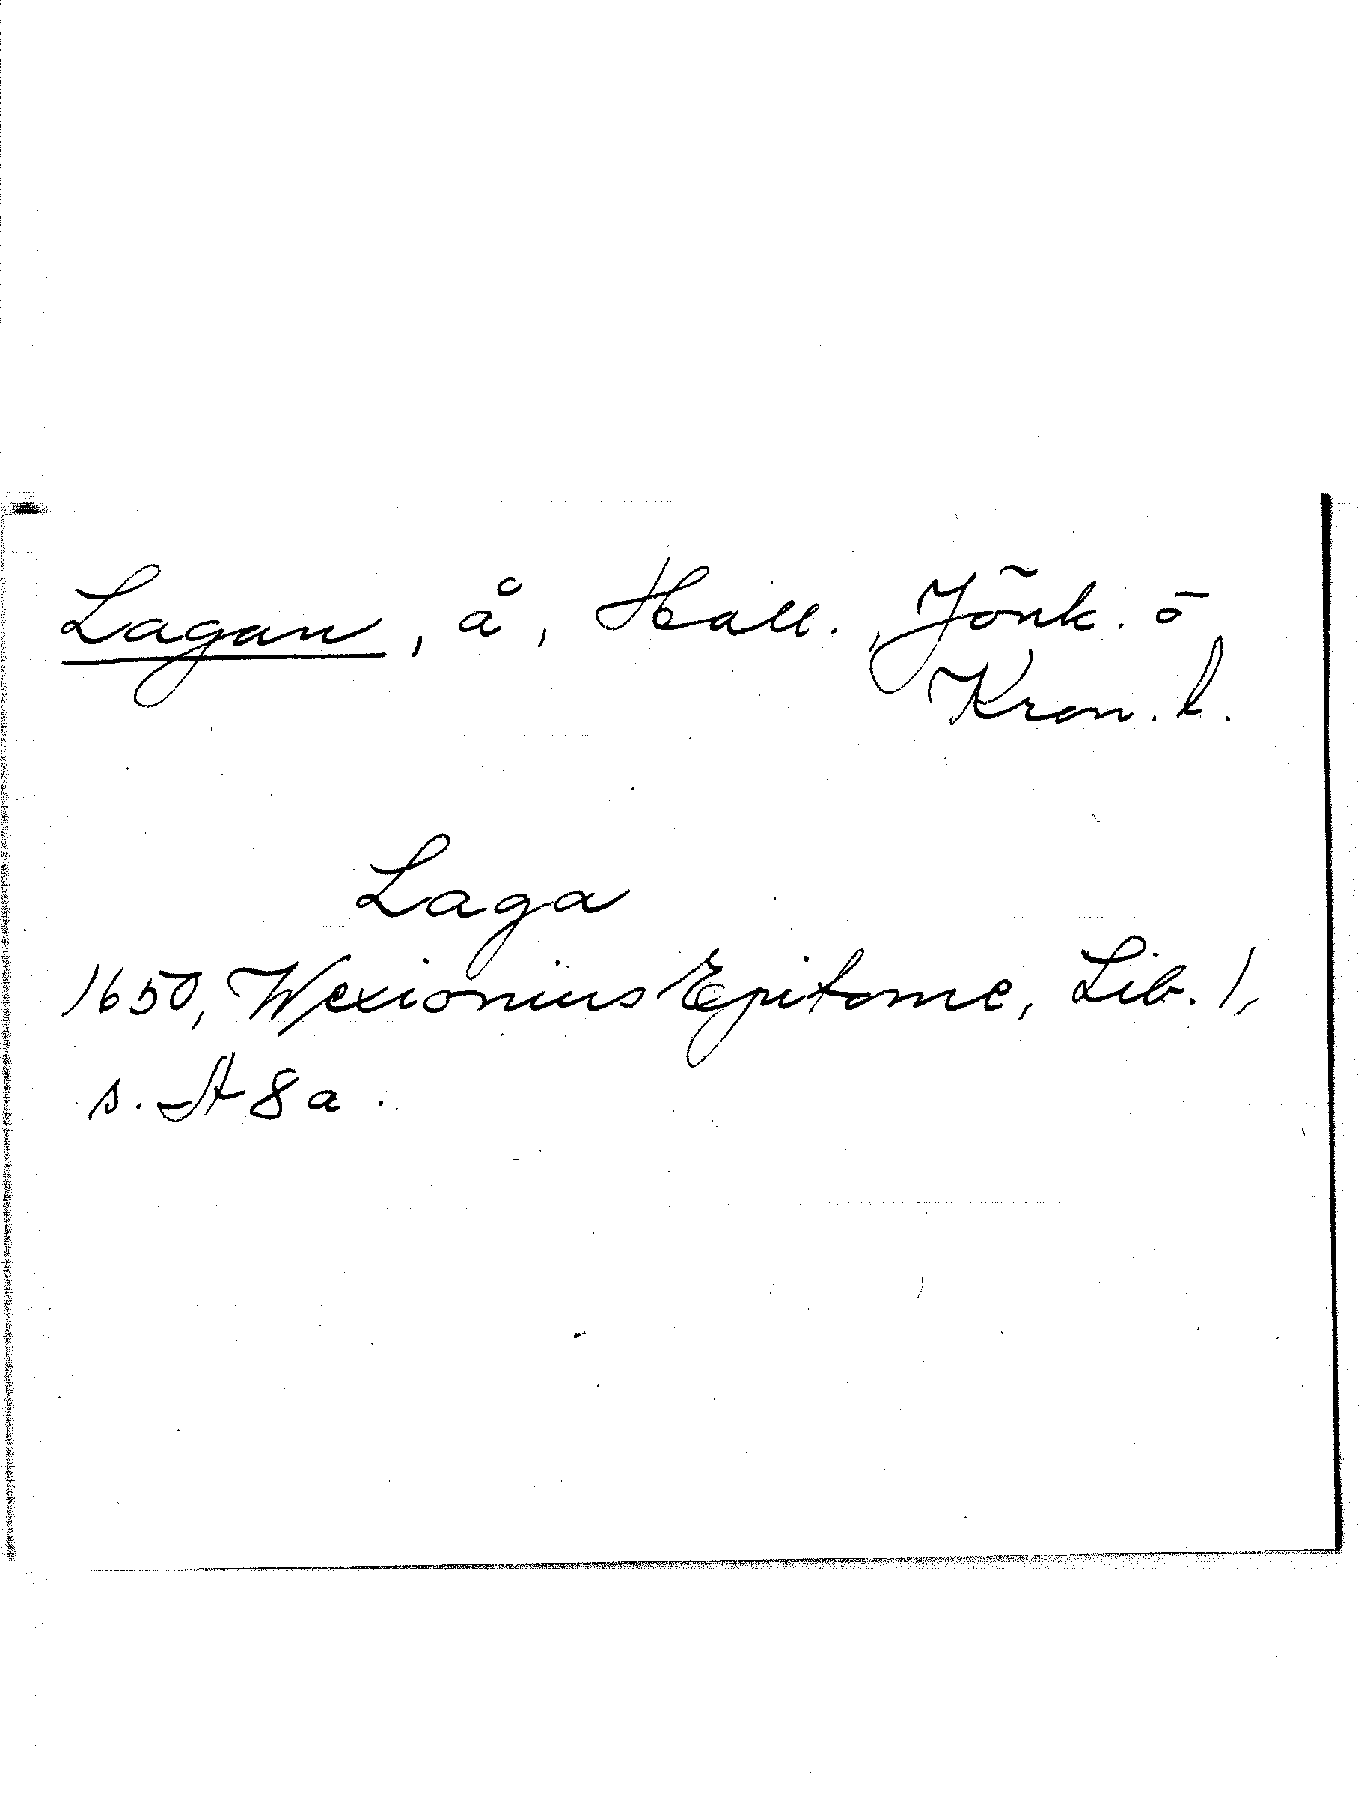 Lagan, å, Hall., Jönk. o
Kron. l.
Laga
1650, Wexionius Epitome, Lib. 1,
s. A 8 a.